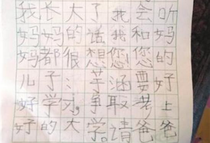 我长大了我会听
妈妈的话我和妈
妈都很想您您的
儿子涵要好
好学争取考上
好的大学。请爸爸